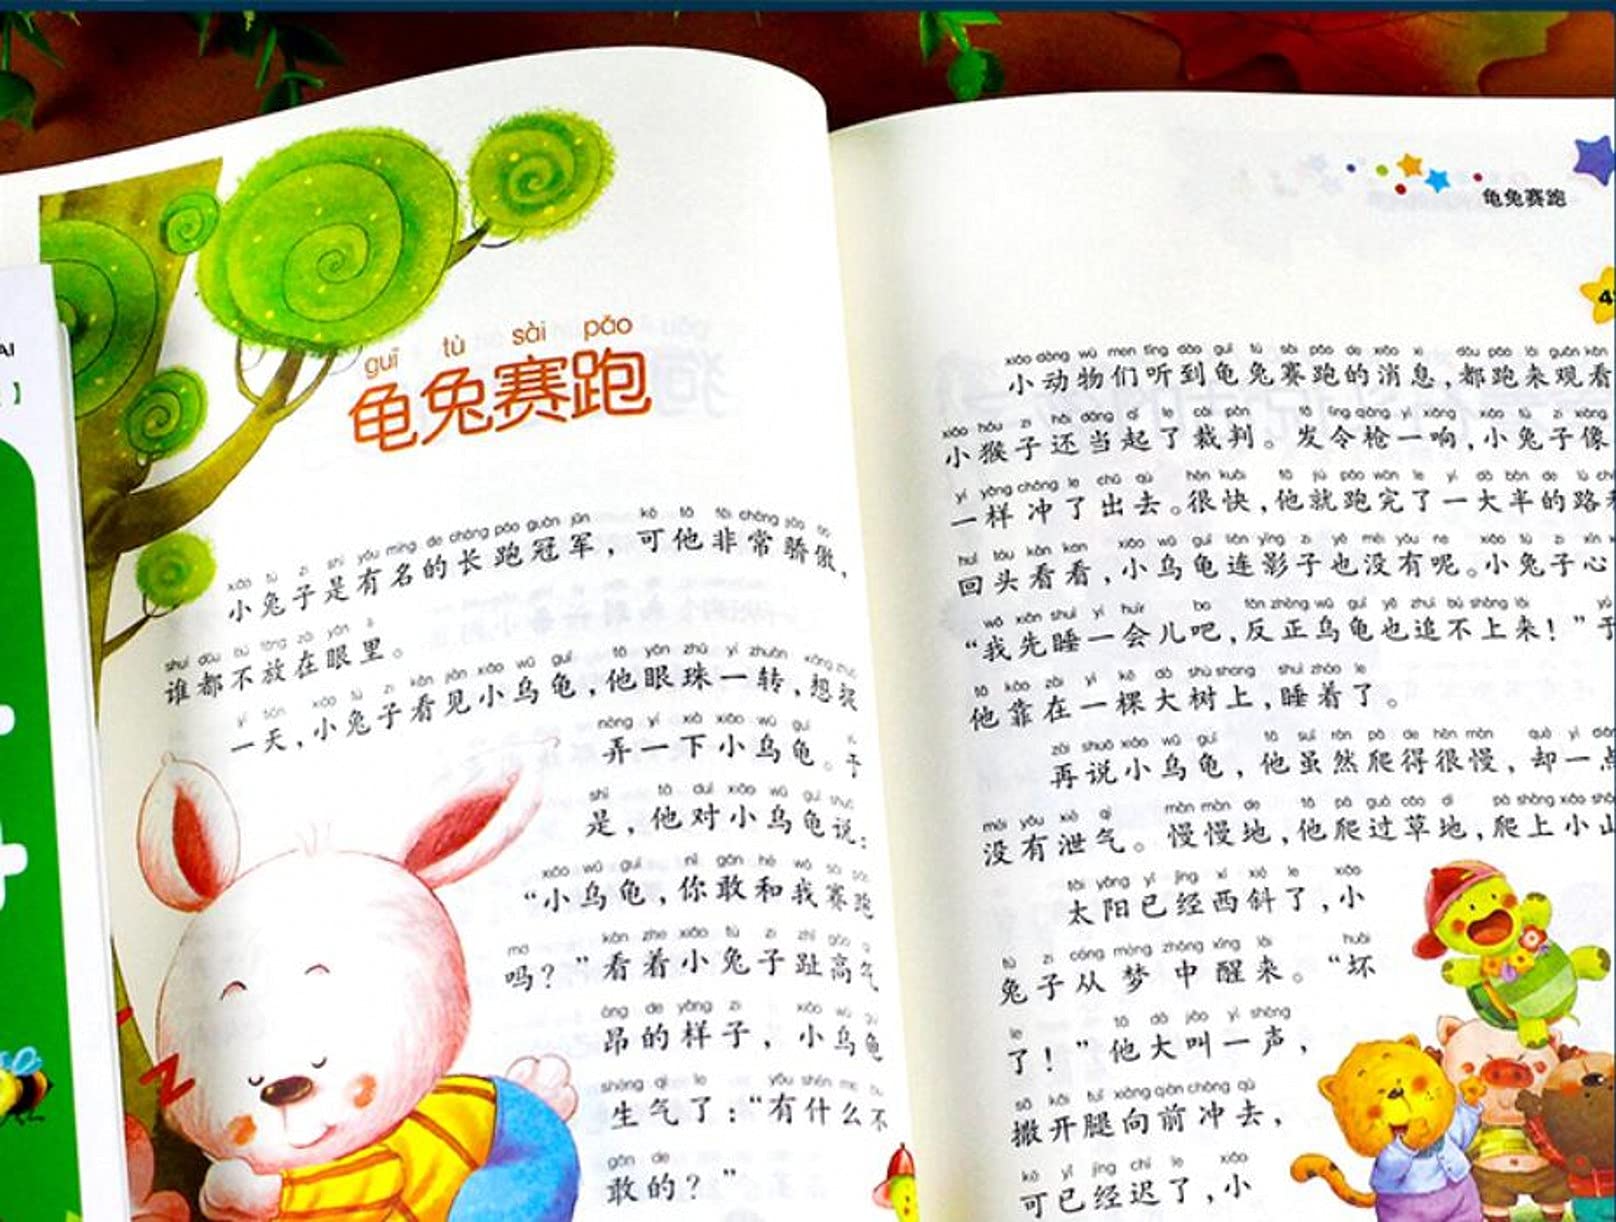 AI
】
guī tù sài pǎo
龟兔赛跑
xiǎo tù zi shì yǒu míng de cháng pǎo guàn jūn kě tā fēi cháng jiāo ào
小兔子是有名的长跑冠军，可他非常骄傲，
shuí dōu bú fàng zài yǎn lǐ
谁都不放在眼里。
yì tiān xiǎo tù zi kàn jiàn xiǎo wū guī tā yǎn zhū yí zhuàn xiǎng
一天，小兔子看见小乌龟，他眼珠一转，想
nòng yí xià xiǎo wū guī
弄一下小乌龟。于
shì tā duì xiǎo wū guī shuō
是，他对小乌龟说：
xiǎo wū guī nǐ gǎn hé wǒ sài pǎo
“小乌龟，你敢和我赛跑
ma kàn zhe xiǎo tù zi zhǐ gāo q
吗？”看着小兔子趾高气
áng de yàng zi xiǎo wū guī
昂的样子，小乌龟
shēng qì le yǒu shén me bù
生气了：“有什么不
gǎn de
敢的？”
龟兔赛跑
xiǎo dòng wù men tīng dào guī tù sài pǎo de xiāo xi dōu pǎo lái guān kàn
小动物们听到龟兔赛跑的消息，都跑来观看
xiǎo hóu zi hái dāng qǐ le cái pàn fā lìng qiāng yì xiǎng xiǎo tù zi xiàng
小猴子还当起了裁判。发令枪一响，小兔子像
yí yàng chōng le chū qù hěn kuài tā jiù pǎo wán le yí dà bàn de lù ch
一样冲了出去。很快，他就跑完了一大半的路
huí tóu kàn kan xiǎo wū guī lián yǐng zi yě méi yǒu ne xiǎo tù zi xīn
回头看看，小乌龟连影子也没有呢。小兔子心
wǒ xiān shuì yí huìr ba fǎn zhèng wū guī yě zhuī bú shàng lái yú
“我先睡一会儿吧，反正乌龟也追不上来！”于
tā kào zài yì kē dà shù shang shuì zháo le
他靠在一棵大树上，睡着了。
zài shuō xiǎo wū guī tā suī rán pá de hěn màn què yì diǎn
再说小乌龟，他虽然爬得很慢，却一点
méi yǒu xiè qì màn màn de tā pá guò cǎo dì pá shàng xiǎo shān
没有泄气。慢慢地，他爬过草地，爬上小山
tài yáng yǐ jīng xī xié le xiǎo
太阳已经西斜了，小
tù zi cóng mèng zhōng xǐng lái huài
兔子从梦中醒来。“坏
le tā dà jiào yì shēng
了！”他大叫一声，
sā kāi tuǐ xiàng qián chōng qù
撒开腿向前冲去，
kě yǐ jīng chí le xiǎo
可已经迟了，小